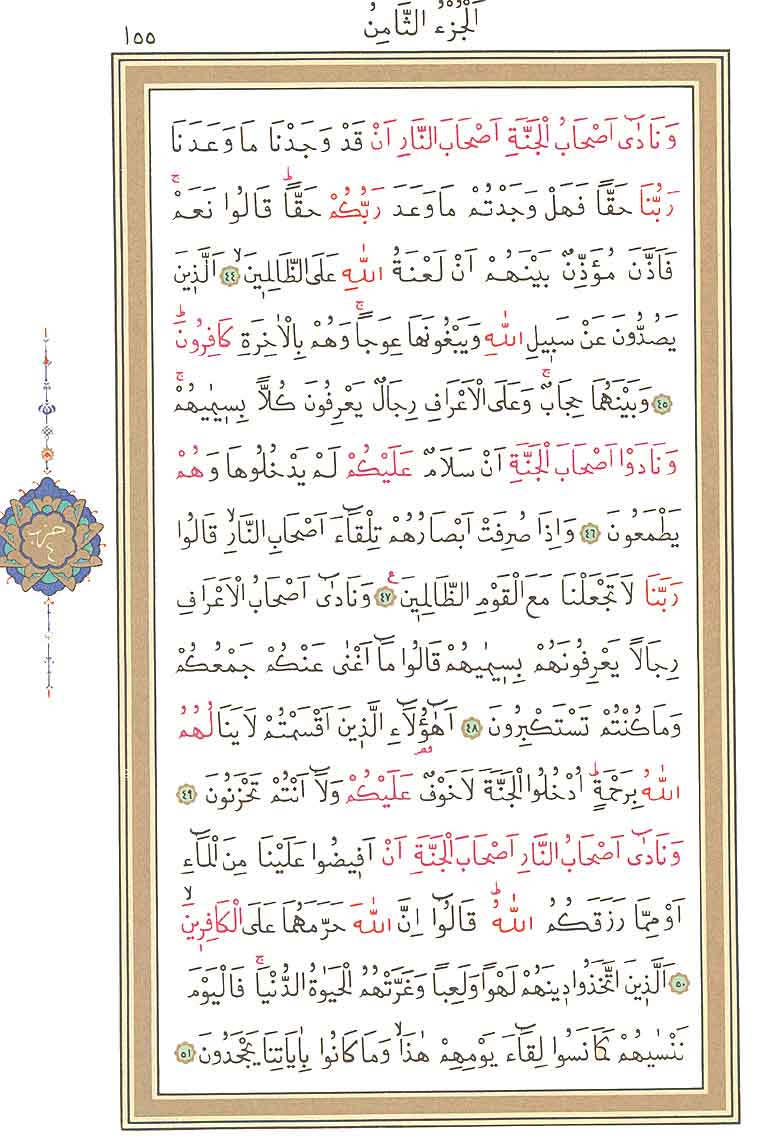 اَلْجُزْءُ الثَّامِنُ
١٥٥
وَنَادٰٓى اَصْحَابُ الْجَنَّةِ اَصْحَابَ النَّارِ اَنْ قَدْ وَجَدْنَا مَا وَعَدَنَا
رَبُّنَا حَقًّا فَهَلْ وَجَدْتُمْ مَا وَعَدَ رَبُّكُمْ حَقًّاۜ قَالُوا نَعَمْۚ
فَاَذَّنَ مُؤَذِّنٌ بَيْنَهُمْ اَنْ لَعْنَةُ اللّٰهِ عَلَى الظَّالِم۪ينَۙ ﴿٤٤﴾ اَلَّذ۪ينَ
يَصُدُّونَ عَنْ سَب۪يلِ اللّٰهِ وَيَبْغُونَهَا عِوَجاًۚ وَهُمْ بِالْاٰخِرَةِ كَافِرُونَۜ
﴿٤٥﴾ وَبَيْنَهُمَا حِجَابٌۚ وَعَلَى الْاَعْرَافِ رِجَالٌ يَعْرِفُونَ كُلاًّ بِس۪يمٰيهُمْۚ
وَنَادَوْا اَصْحَابَ الْجَنَّةِ اَنْ سَلَامٌ عَلَيْكُمْ لَمْ يَدْخُلُوهَا وَهُمْ
يَطْمَعُونَ ﴿٤٦﴾ وَاِذَا صُرِفَتْ اَبْصَارُهُمْ تِلْقَٓاءَ اَصْحَابِ النَّارِۙ قَالُوا
رَبَّنَا لَا تَجْعَلْنَا مَعَ الْقَوْمِ الظَّالِم۪ينَ۟ ﴿٤٧﴾ وَنَادٰٓى اَصْحَابُ الْاَعْرَافِ
رِجَالاً يَعْرِفُونَهُمْ بِس۪يمٰيهُمْ قَالُوا مَٓا اَغْنٰى عَنْكُمْ جَمْعُكُمْ
وَمَا كُنْتُمْ تَسْتَكْبِرُونَ ﴿٤٨﴾ اَهٰٓؤُ۬لَٓاءِ الَّذ۪ينَ اَقْسَمْتُمْ لَا يَنَالُهُمُ
اللّٰهُ بِرَحْمَةٍۜ اُدْخُلُوا الْجَنَّةَ لَا خَوْفٌ عَلَيْكُمْ وَلَٓا اَنْتُمْ تَحْزَنُونَ ﴿٤٩﴾
وَنَادٰٓى اَصْحَابُ النَّارِ اَصْحَابَ الْجَنَّةِ اَنْ اَف۪يضُوا عَلَيْنَا مِنَ الْمَٓاءِ
اَوْ مِمَّا رَزَقَكُمُ اللّٰهُۜ قَالُٓوا اِنَّ اللّٰهَ حَرَّمَهُمَا عَلَى الْكَافِر۪ينَۙ
﴿٥٠﴾ اَلَّذ۪ينَ اتَّخَذُوا د۪ينَهُمْ لَهْواً وَلَعِباً وَغَرَّتْهُمُ الْحَيٰوةُ الدُّنْيَاۚ فَالْيَوْمَ
نَنْسٰيهُمْ كَمَا نَسُوا لِقَٓاءَ يَوْمِهِمْ هٰذَاۙ وَمَا كَانُوا بِاٰيَاتِنَا يَجْحَدُونَ ﴿٥١﴾
حزب
٤